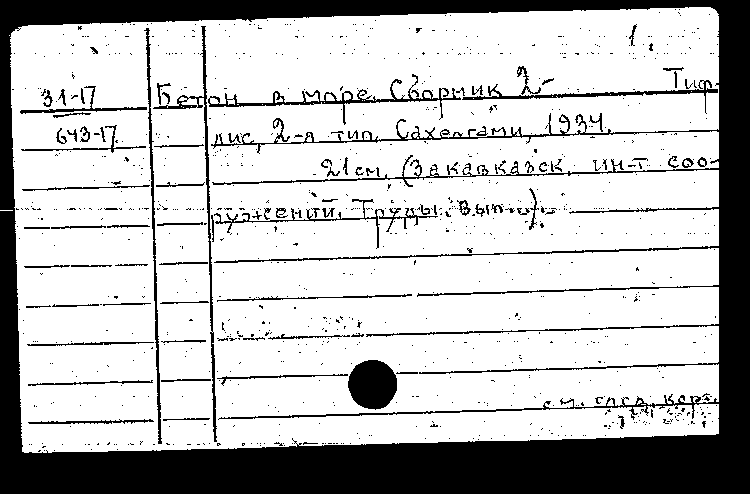 1.
31-17 Бетон в море. Сборник 2- Тиф-
643-17 лис, 2-я тип. Сахелгами, 1934.
21 см. (Закавказск. ин-т соо-
ружений. Труды. Вып...).
см. след. карт.